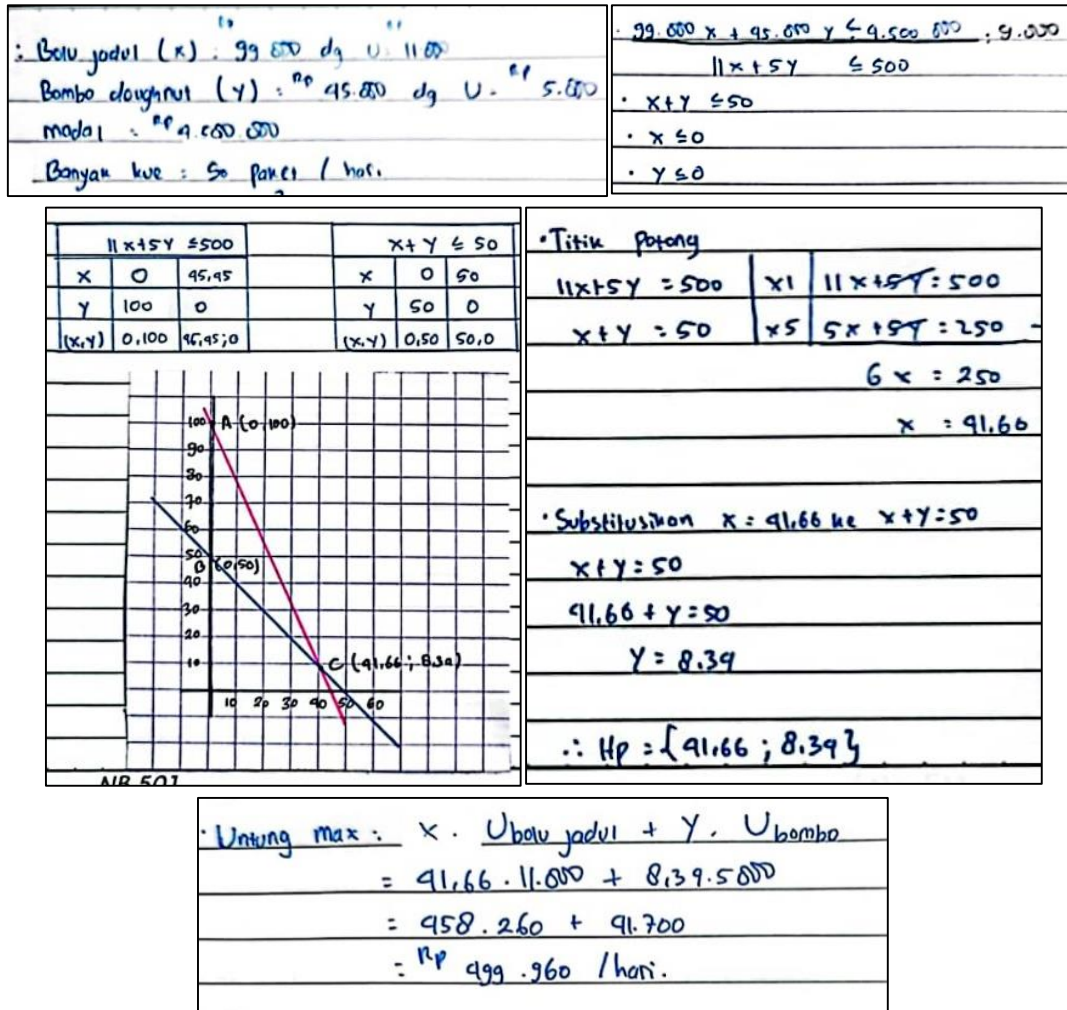 : Bolu jadul (x) : Rp 99.000 dg U. Rp 11.000
Bombo doughnut (y) : Rp 45.000 dg U. Rp 5.000
modal : Rp 4.500.000
Banyak kue : 50 paket / hari.
· 99.000 x + 45.000 y ≤ 4.500.000 : 9.000
11x + 5y ≤ 500
· x + y ≤ 50
· x ≤ 0
· y ≤ 0
11x + 5y ≤ 500
x 0 45,45
y 100 0
(x,y) 0,100 45,45;0
x + y ≤ 50
x 0 50
y 50 0
(x,y) 0,50 50,0
100 A (0,100)
90
80
70
60
50
B (0,50)
40
30
20
10 C (41,66 ; 8,34)
10 20 30 40 50 60
· Titik potong
11x + 5y = 500 | x1 | 11x + 5y = 500
x + y = 50 | x5 | 5x + 5y = 250 -
6x = 250
x = 41,66
· Substitusikan x = 41,66 ke x + y = 50
x + y = 50
41,66 + y = 50
y = 8.34
∴ Hp = {41,66 ; 8.34}
· Untung max : x . U bolu jadul + y . U bombo
= 41,66 . 11.000 + 8,34 . 5000
= 458.260 + 41.700
= Rp 499.960 / hari.